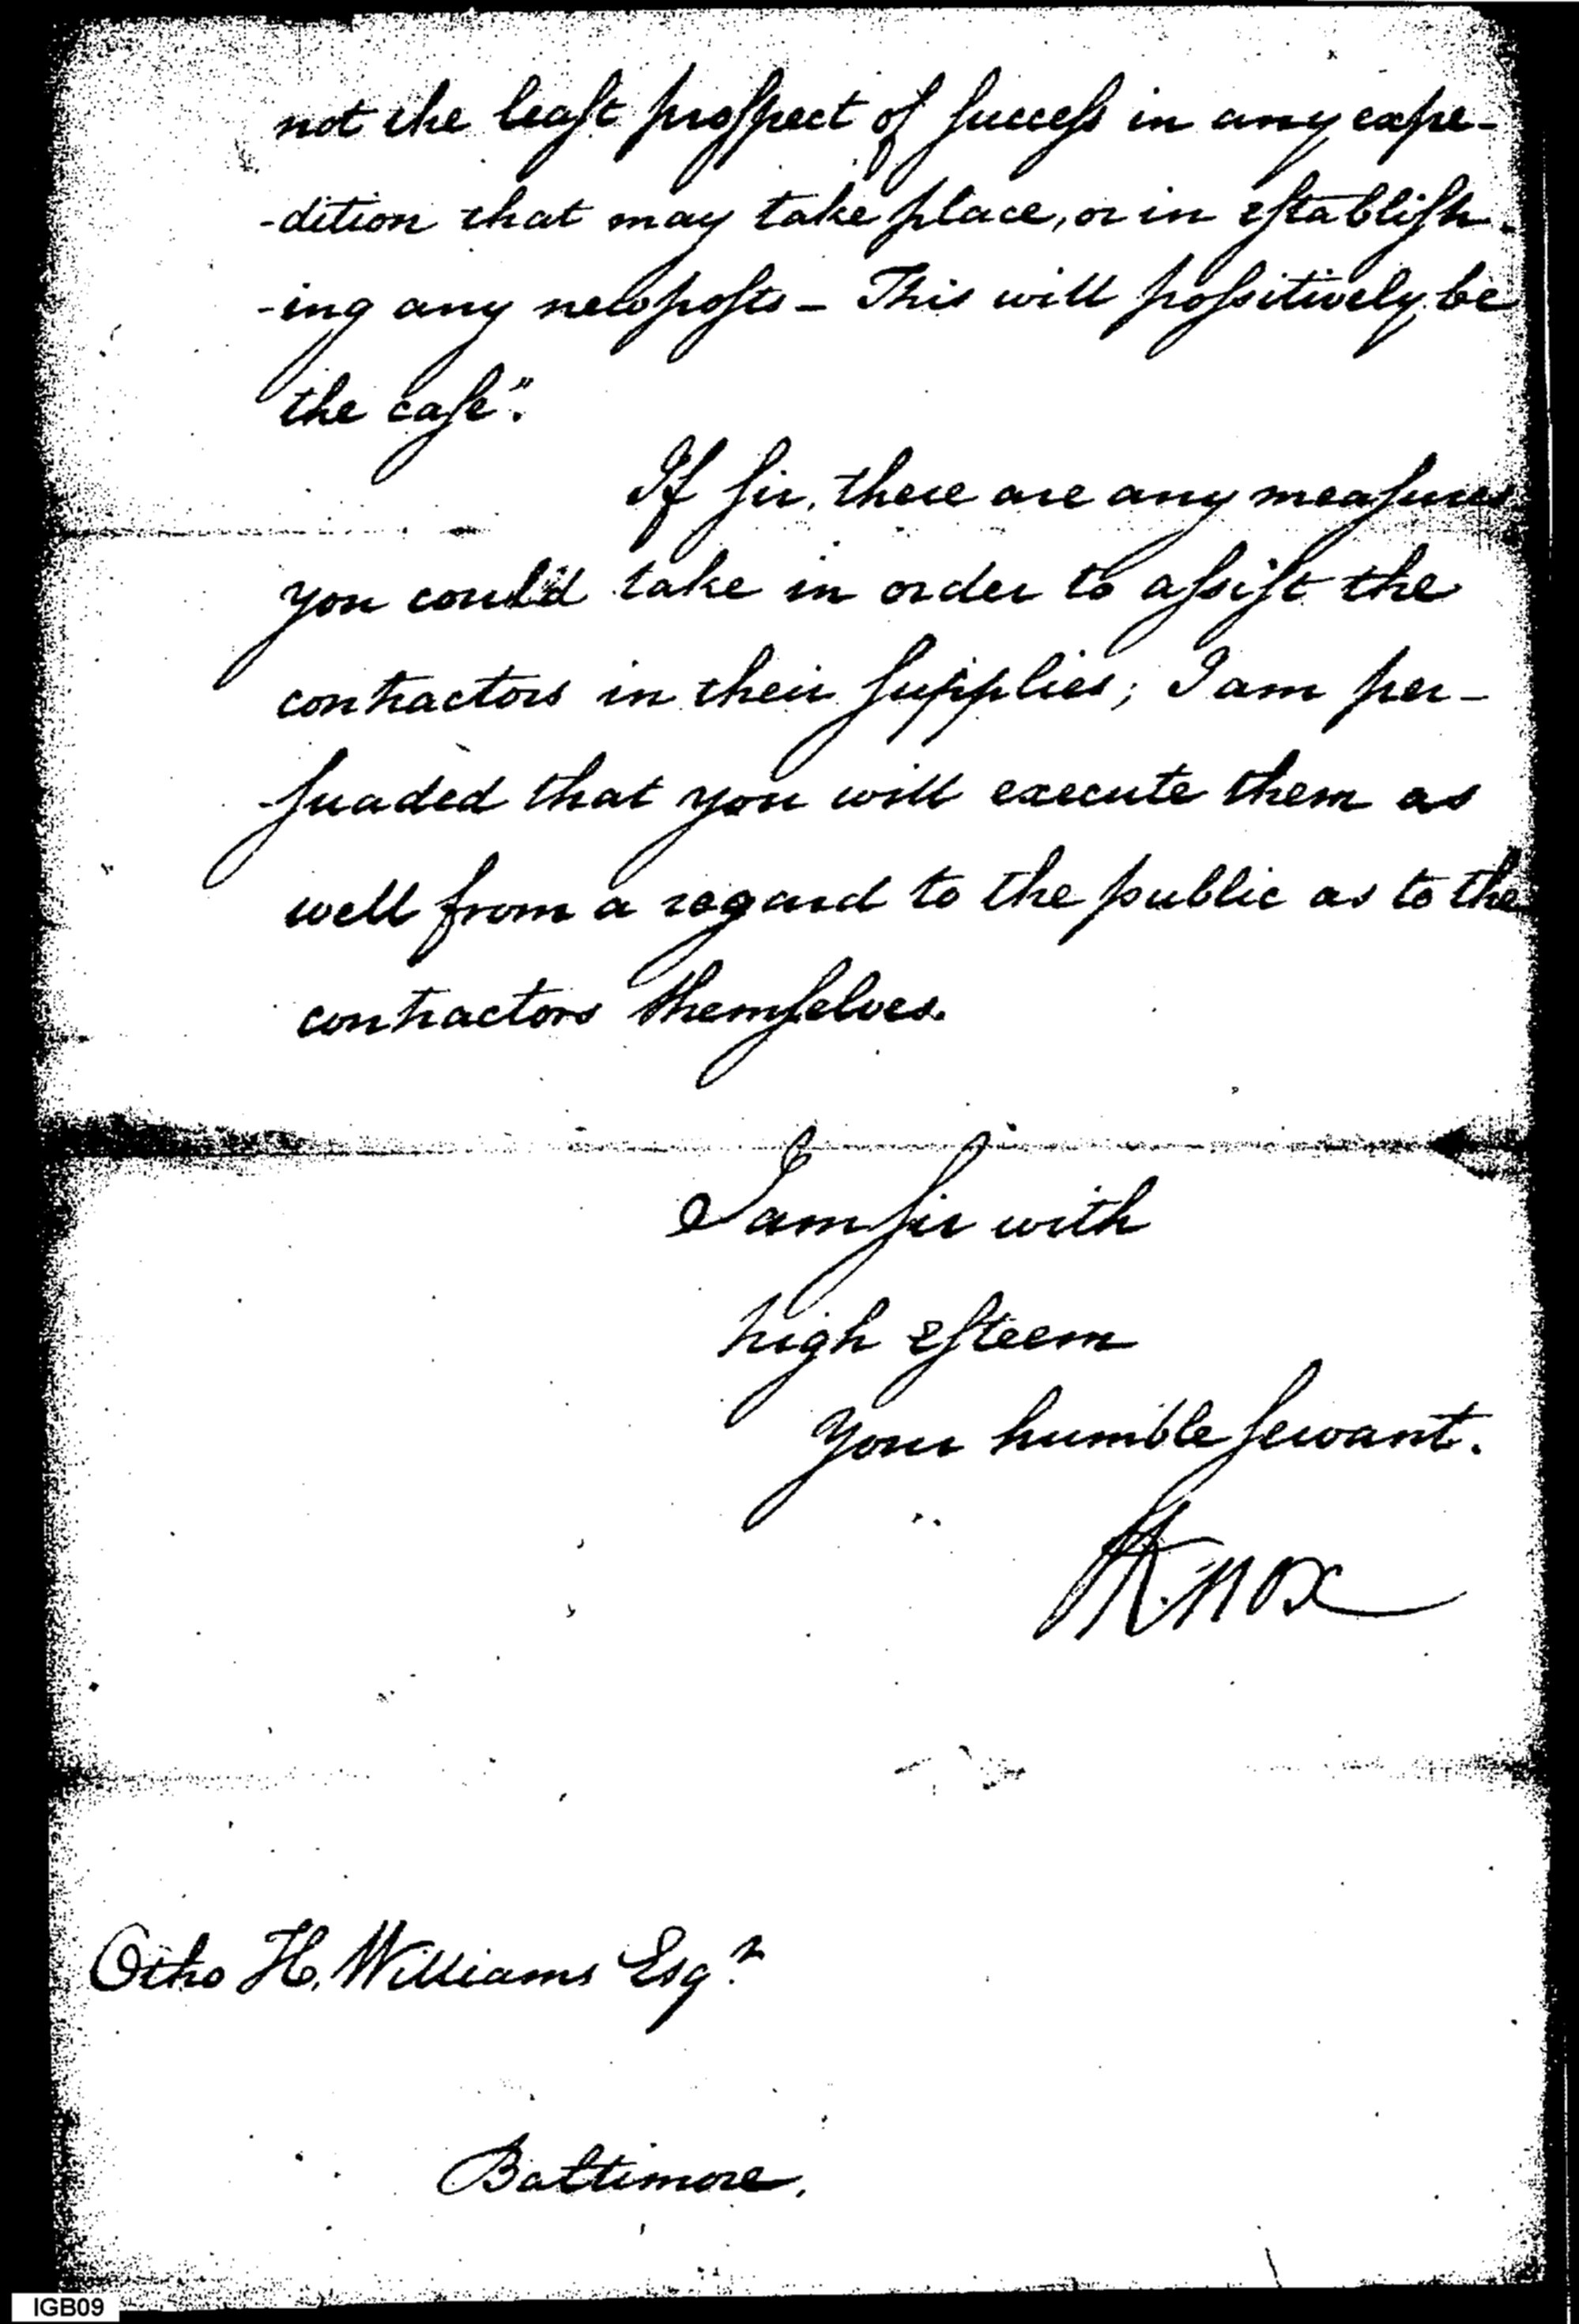 not the least prospect of success in any expe-
-dition that may take place, or in establish-
-ing any new posts - This will possitively be
the case".
If sir, there are any measures
you could take in order to assist the
contractors in their supplies; I am per-
-suaded that you will execute them as
well from a regard to the public as to the
contractors themselves.
I am sir with
high esteem
Your humble servant.
HKnox
Otho H. Williams Esqr.
Baltimore.
IGB09